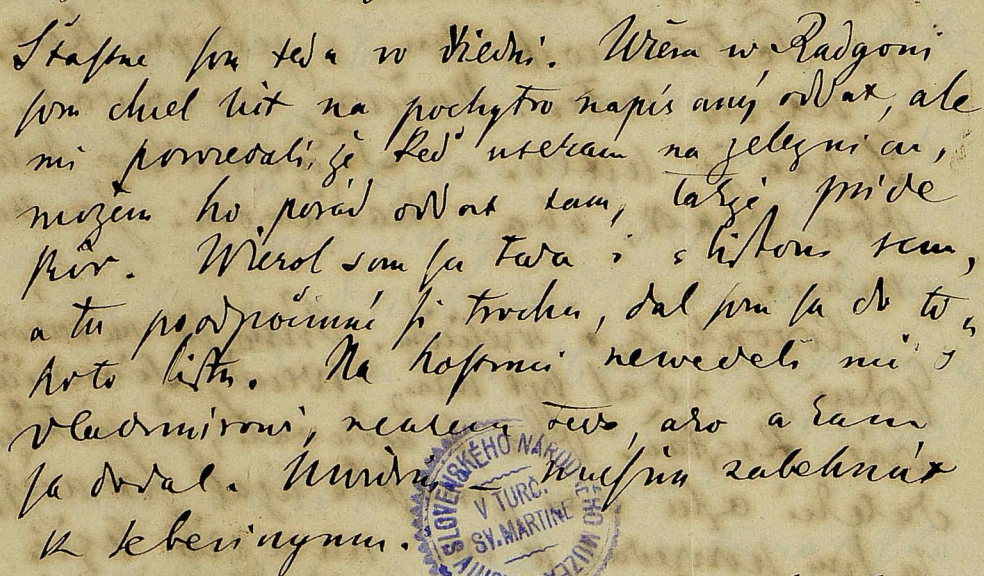 Šťastne som teda vo Viedni. Včera w Radgoni
som chcel list na pochytro napísaný oddať, ale
mi powiedali, že keď utekám na železnicu,
možem ho porád oddať tam, takže pride
skôr. Wierol som sa teda i s listom sem,
a tu poodpočinúc si trochu, dal som sa do to„
hoto listu. Na kosmii newedeli mi o
Vladimirovi, neviem teda, ako a kam
sa dodal. musím zabehnúť
k
SLOVENSKÉHO NÁRODNÉHO MUZEA
V TURČ.
SV. MARTINE